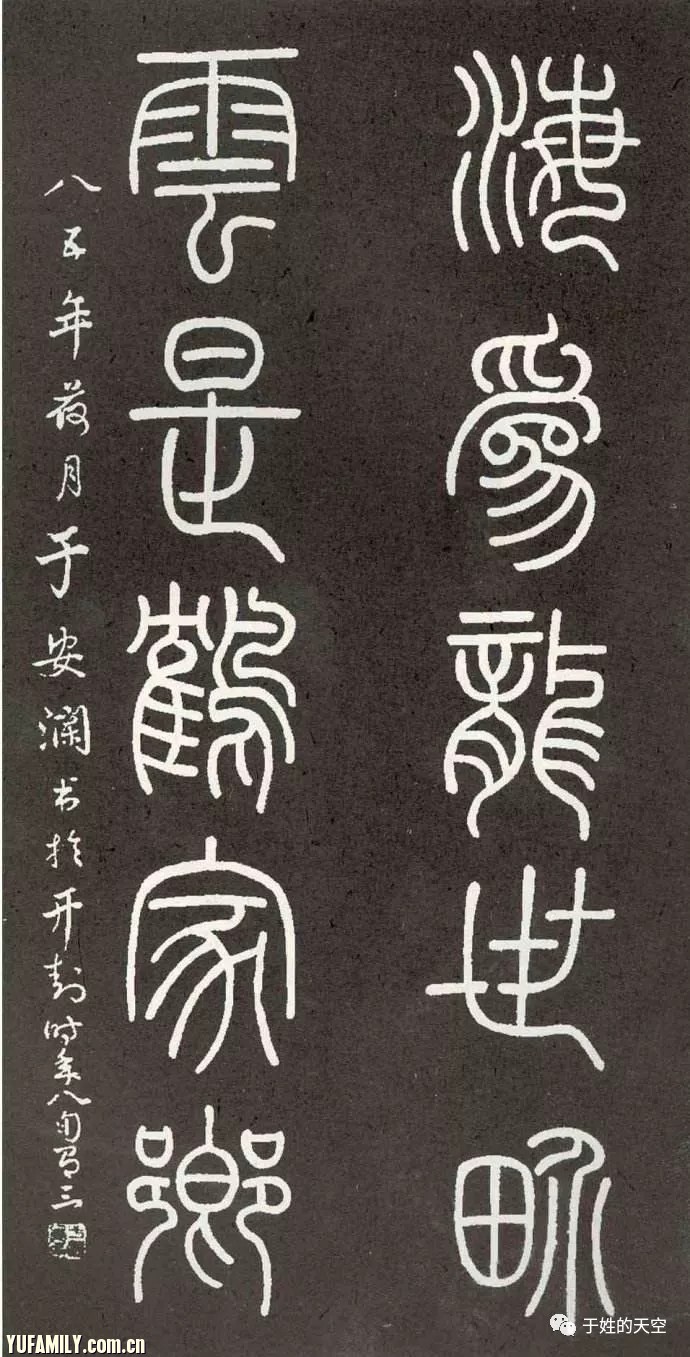 海爲龍世畍
雲是鶴家鄉
八五年月于安瀾书於开封时年八旬有三
YUFAMILY.com.cn
于姓的天空